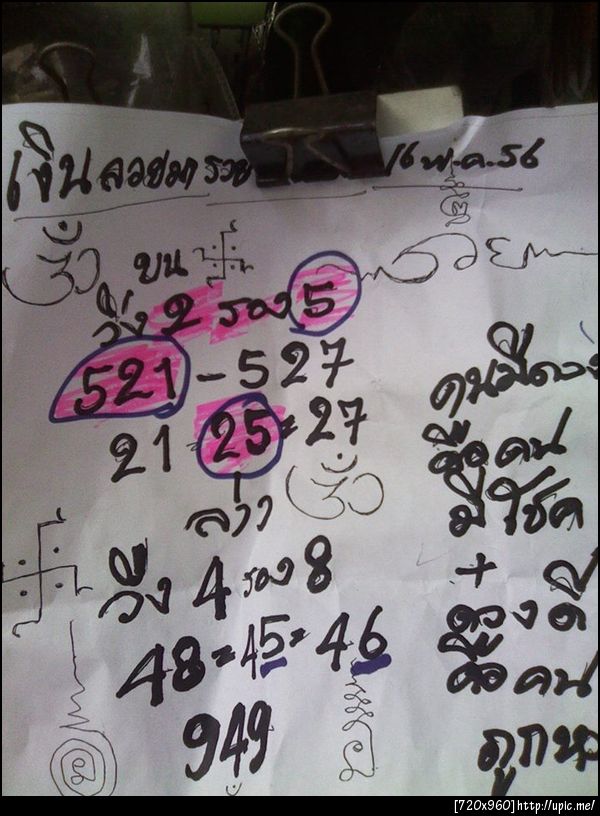 เงินลอยมา รวย
16 พ.ค. 56
บน
รวย
วิ่ง 2 รอง 5
521 - 527
21 - 25 = 27
ล่าง
วิ่ง 4 รอง 8
48 = 45 = 46
949
คนมีดวง
คือคน
มีโชค
+
ดวงดี
คือคน
ถูกหว
[720x960]http://upic.me/